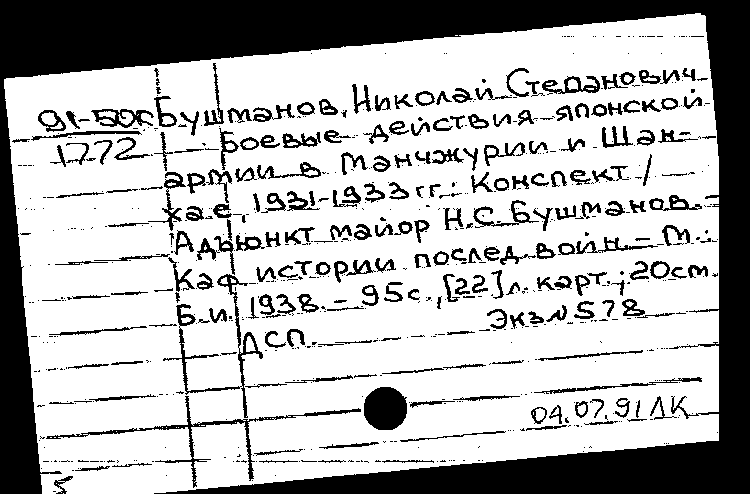 91-50с Бушманов, Николай Степанович
1772 Боевые действия японской
армии в Манчжурии и Шан-
хае, 1931-1933 гг.: Конспект /
Адъюнкт майор Н.С. Бушманов. –
Каф. истории послед. войн. – М.:
Б.и. 1938. – 95с., [22] л. карт.; 20см.
ДСП. Экз № 578
04.07.91 ЛК
5